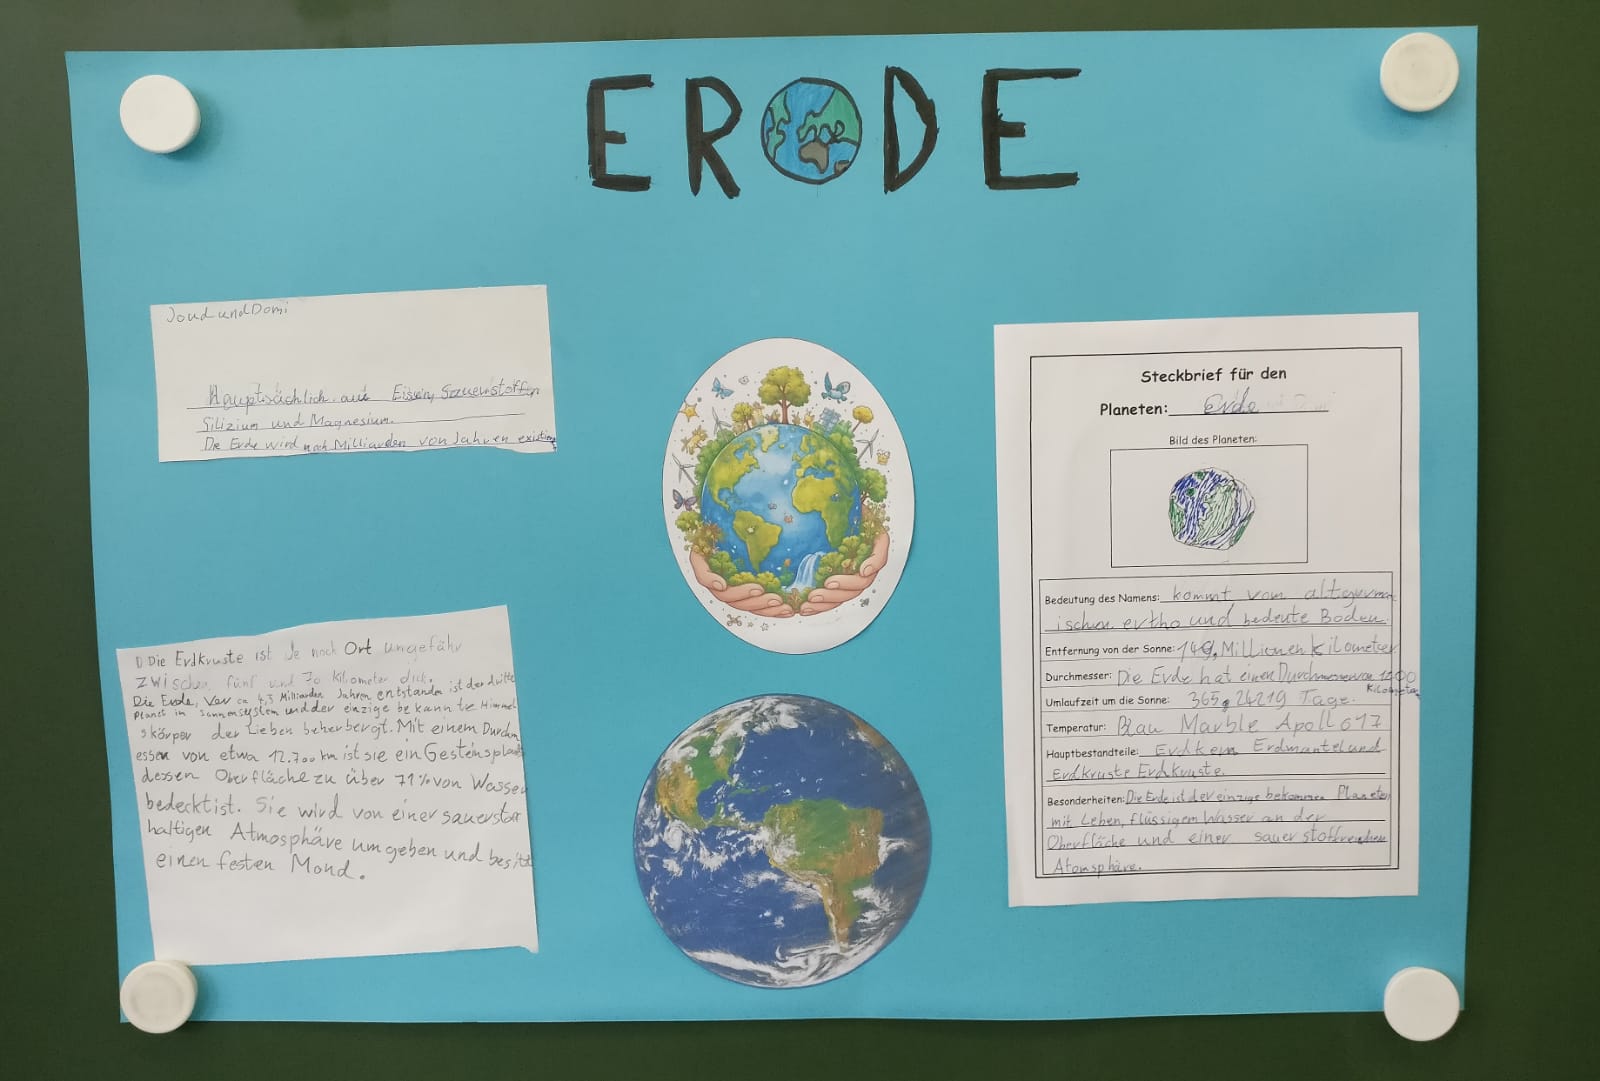 ERDE
Joud und Domi
Hauptsächlich aus Eisen, Sauerstoffen
Silizium und Magnesium.
Die Erde wird noch Milliarden von Jahren
Die Erdkruste ist Je nach Ort ungefähr
zwischen fünf und 70 Kilometer dick.
Die Erde, Vor ca 4,3 Milliarden Jahren entstanden ist der dritte
Planet im Sonnensystem und der einzige bekannte Himmel
skörper der Lieben beherbergt. Mit einem Durchm
esser von etwa 12.700 km ist sie ein Gesteinsplanet
dessen Oberfläche zu über 71% von Wasser
bedeckt ist. Sie wird von einer sauerstoff
haltigen Atmosphäre umgeben und besitzt
einen festen Mond.
Steckbrief für den
Planeten: Erde
Bild des Planeten:
Bedeutung des Namens: kommt vom altgerman
ischen ertho und bedeute Boden.
Entfernung von der Sonne: 149, Millionen kilometer
Durchmesser: Die Erde hat einen Durchmesser von
Kilometer
Umlaufzeit um die Sonne: 365,24219 Tage.
Temperatur: Blau Marble Apollo 17
Hauptbestandteile: Erdkern Erdmantel und
Erdkruste Erdkruste.
Besonderheiten: Die Erde ist der einzige bekommen Planeten
mit Leben, flüssigem Wasser an der
Oberfläche und einer sauerstoffreichen
Atomsphäre.